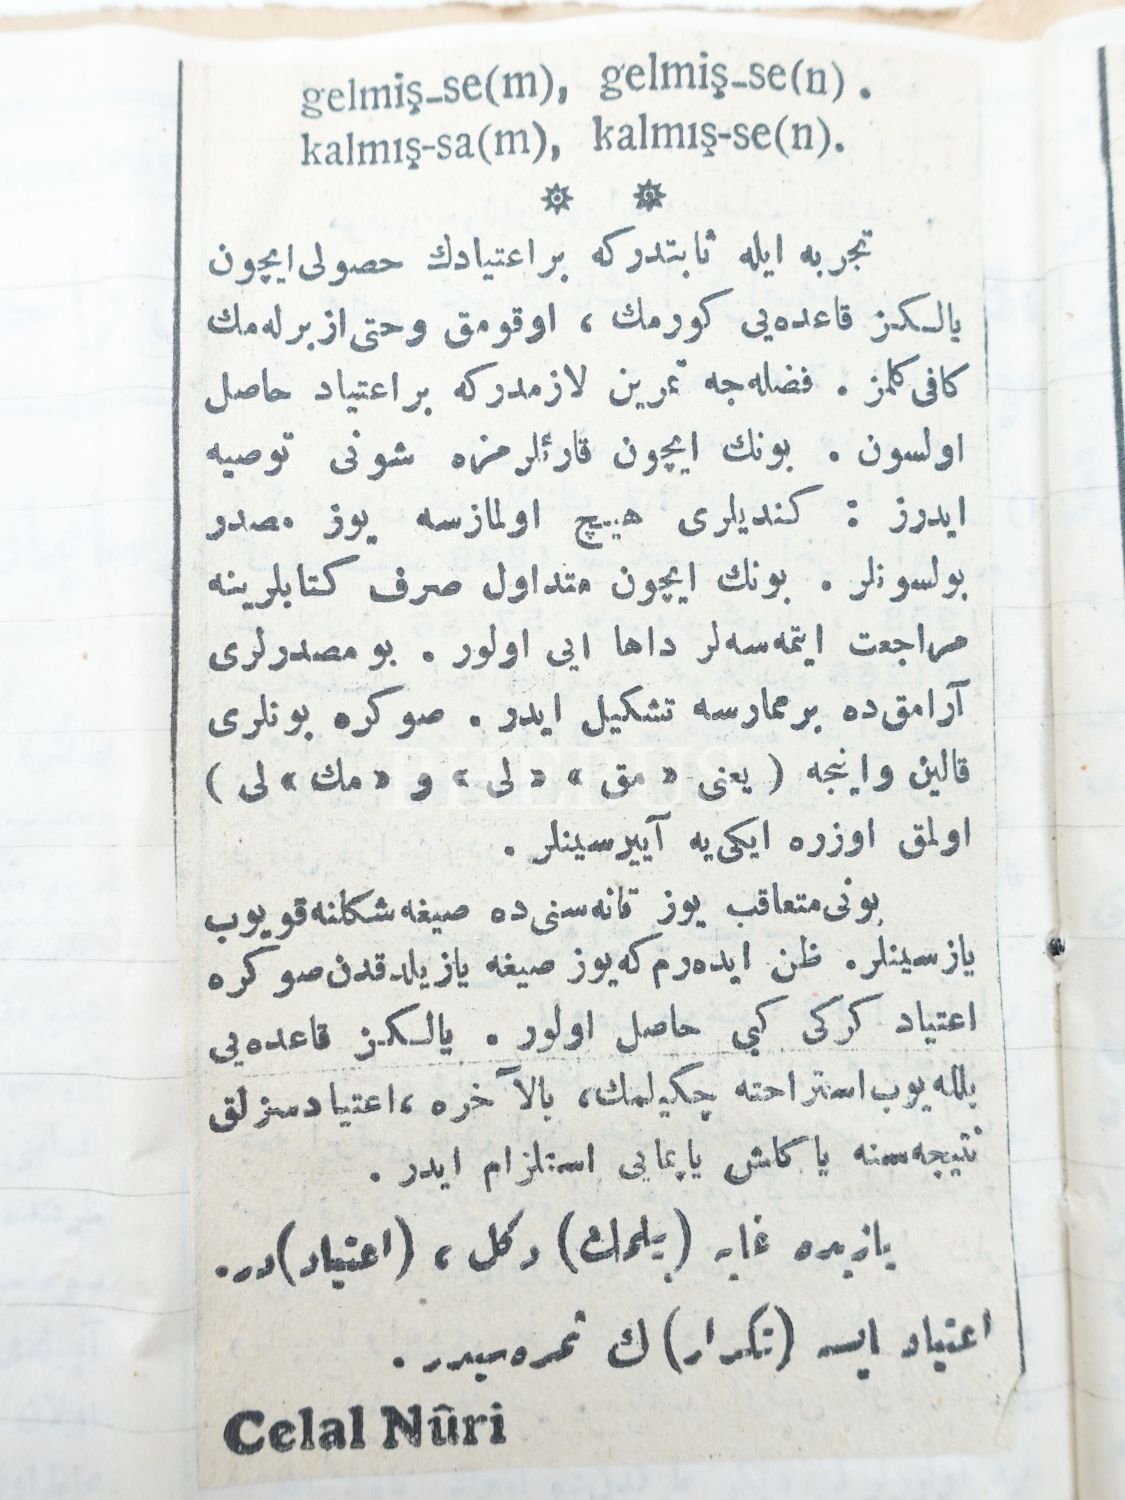 gelmiş-se(m), gelmiş-se(n).
kalmış-sa(m), kalmış-se(n).
تجربه ايله ثابتدركه بر اعتيادك حصولى ايچون
يالكز قاعده‌يى كورمك ، اوقومق وحتى ازبرله‌مك
كافى كلمز . فضله‌جه تمرين لازمدركه بر اعتياد حاصل
اولسون . بونك ايچون قارئلرمزه شونى توصيه
ايدرز : كنديلرى هيچ اولمازسه يوز مصدر
بولسونلر . بونك ايچون متداول صرف كتابلرينه
مراجعت ايتمه‌سه‌لر داها ايى اولور . بو مصدرلرى
آرامق‌ده بر ممارسه تشكيل ايدر . صوكره بونلرى
قالين وانجه ( يعنى « مق » لى » و « مك » لى )
اولمق اوزره ايكى‌يه آييرسينلر .
بونى متعاقب يوز دانه‌سنى‌ده صيغه شكلنه قويوب
يازسينلر. ظن ايده‌رم كه يوز صيغه يازيلدقدن صوكره
اعتياد كركى كبى حاصل اولور . يالكز قاعده‌يى
بللەيوب استراحته چكيلمك، بالآخره ،اعتيادسزلق
نتيجه‌سنه ياكلش ياپمايى استلزام ايدر .
يازيده غايه (بيلمك) دكل ، (اعتياد)در.
اعتياد ايسه (تكرار) ك ثمره‌سيدر .
Celal Nûri